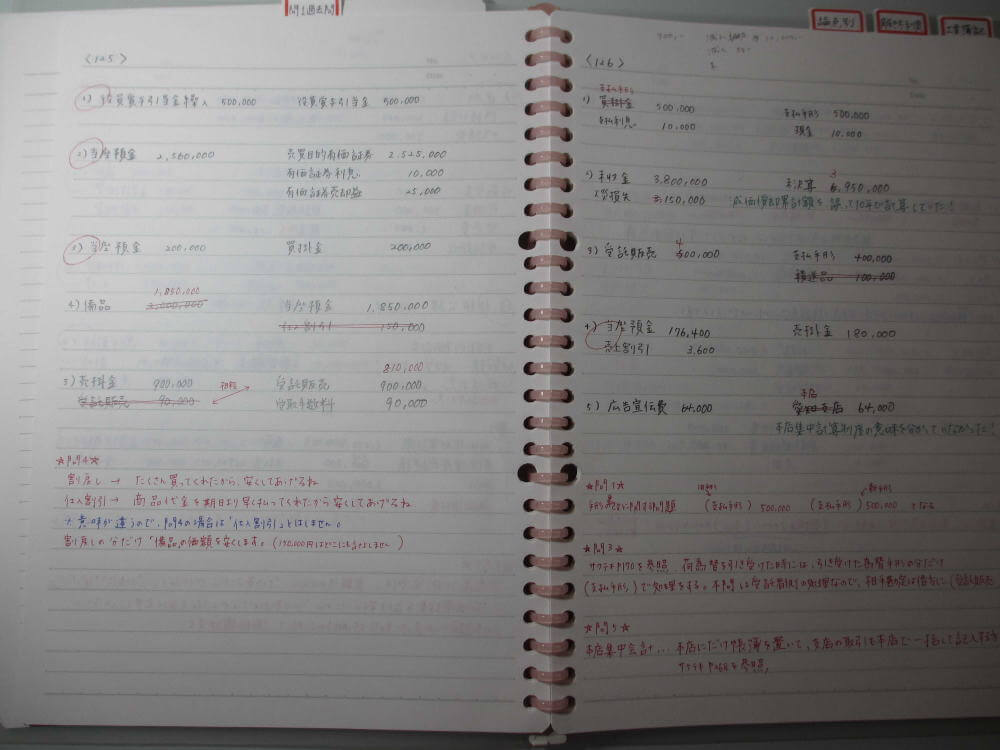 問1過去問
論点別
工業簿記
<125>
1) 投資貸手引当金繰入 500,000 投資貸手引当金 500,000
2) 当座預金 2,560,000 売買目的有価証券 2,525,000
有価証券利息 10,000
有価証券売却益 25,000
3) 当座預金 200,000 買掛金 200,000
1,850,000
4) 備品 2,000,000 当座預金 1,850,000
仕入割引 150,000
810,000
5) 売掛金 900,000 相殺 受託販売 900,000
受託販売 90,000 受取手数料 90,000
☆問4☆
割戻し → たくさん買ってくれたから、安くしてあげるね
仕入割引 → 商品代金を期日より早く払ってくれたから安くしてあげるね
※意味が違うので、問4の場合は「仕入割引」とはしません。
割戻しの分だけ「備品」の価額を安くします。(150,000円はどこにも計上しません)
<126>
支払手形
1) 買掛金 500,000 支払手形 500,000
支払利息 10,000 現金 10,000
2) 未収金 3,800,000 未決算 3,950,000
災害損失 150,000 減価償却累計額を誤って10年で計算していた!
3) 受託販売 400,000 支払手形 400,000
積送品 100,000
4) 当座預金 176,400 売掛金 180,000
売上割引 3,600
本店
5) 広告宣伝費 64,000 支店 64,000
本店集中計算制度の意味を分かっていなかった!
☆問1☆ 旧手形 新手形
手形の更改に関する問題 (支払手形) 500,000 (支払手形) 500,000 となる
☆問3☆
サクテキP170を参照 荷為替を引き受けた時には、引き受けた為替手形の分だけ
(支払手形)で処理をする。本問は受託者側の処理なので、相手勘定は借方に(受託販売
☆問5☆
本店集中会計... 本店にだけ帳簿を置いて、支店の取引を本店で一括して記入する
サクテキ を参照。